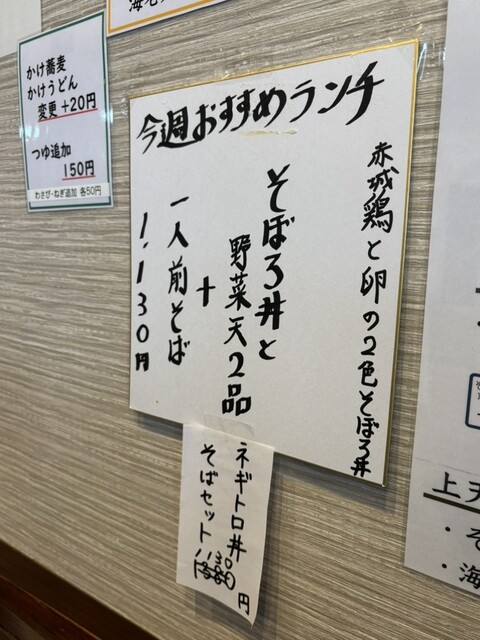 海老
かけ蕎麦
かけうどん
変更 +20円
つゆ追加
150円
わさび・ねぎ追加 各50円
今週おすすめランチ
赤城鶏と卵の2色そぼろ丼
そぼろ丼と
野菜天2品
+
一人前そば
1,130円
ネギトロ丼
そばセット
1130
円
上天
・そ
・海